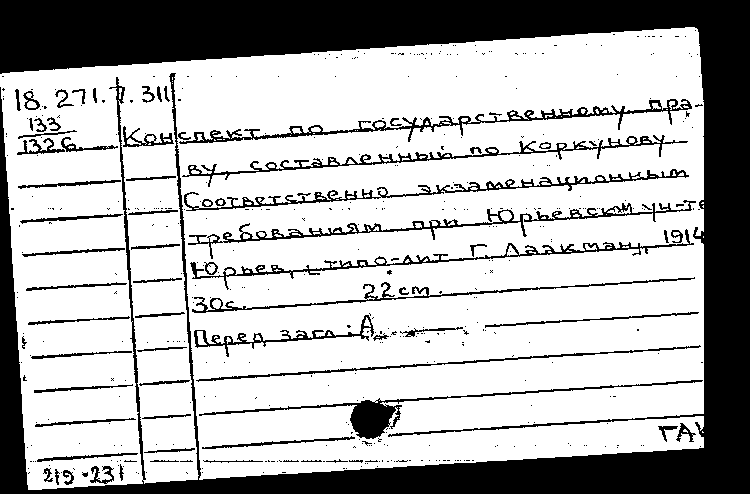 18. 271. 7. 311.
133
1326 Конспект по государственному пра-
ву, составленный по Коркунову
Соответственно экзаменационным
требованиям при Юрьевском ун-те
Юрьев, типо-лит Г. Лаакман, 1914
30с. 22 cm.
Перед загл: А.
ГАК
219-231